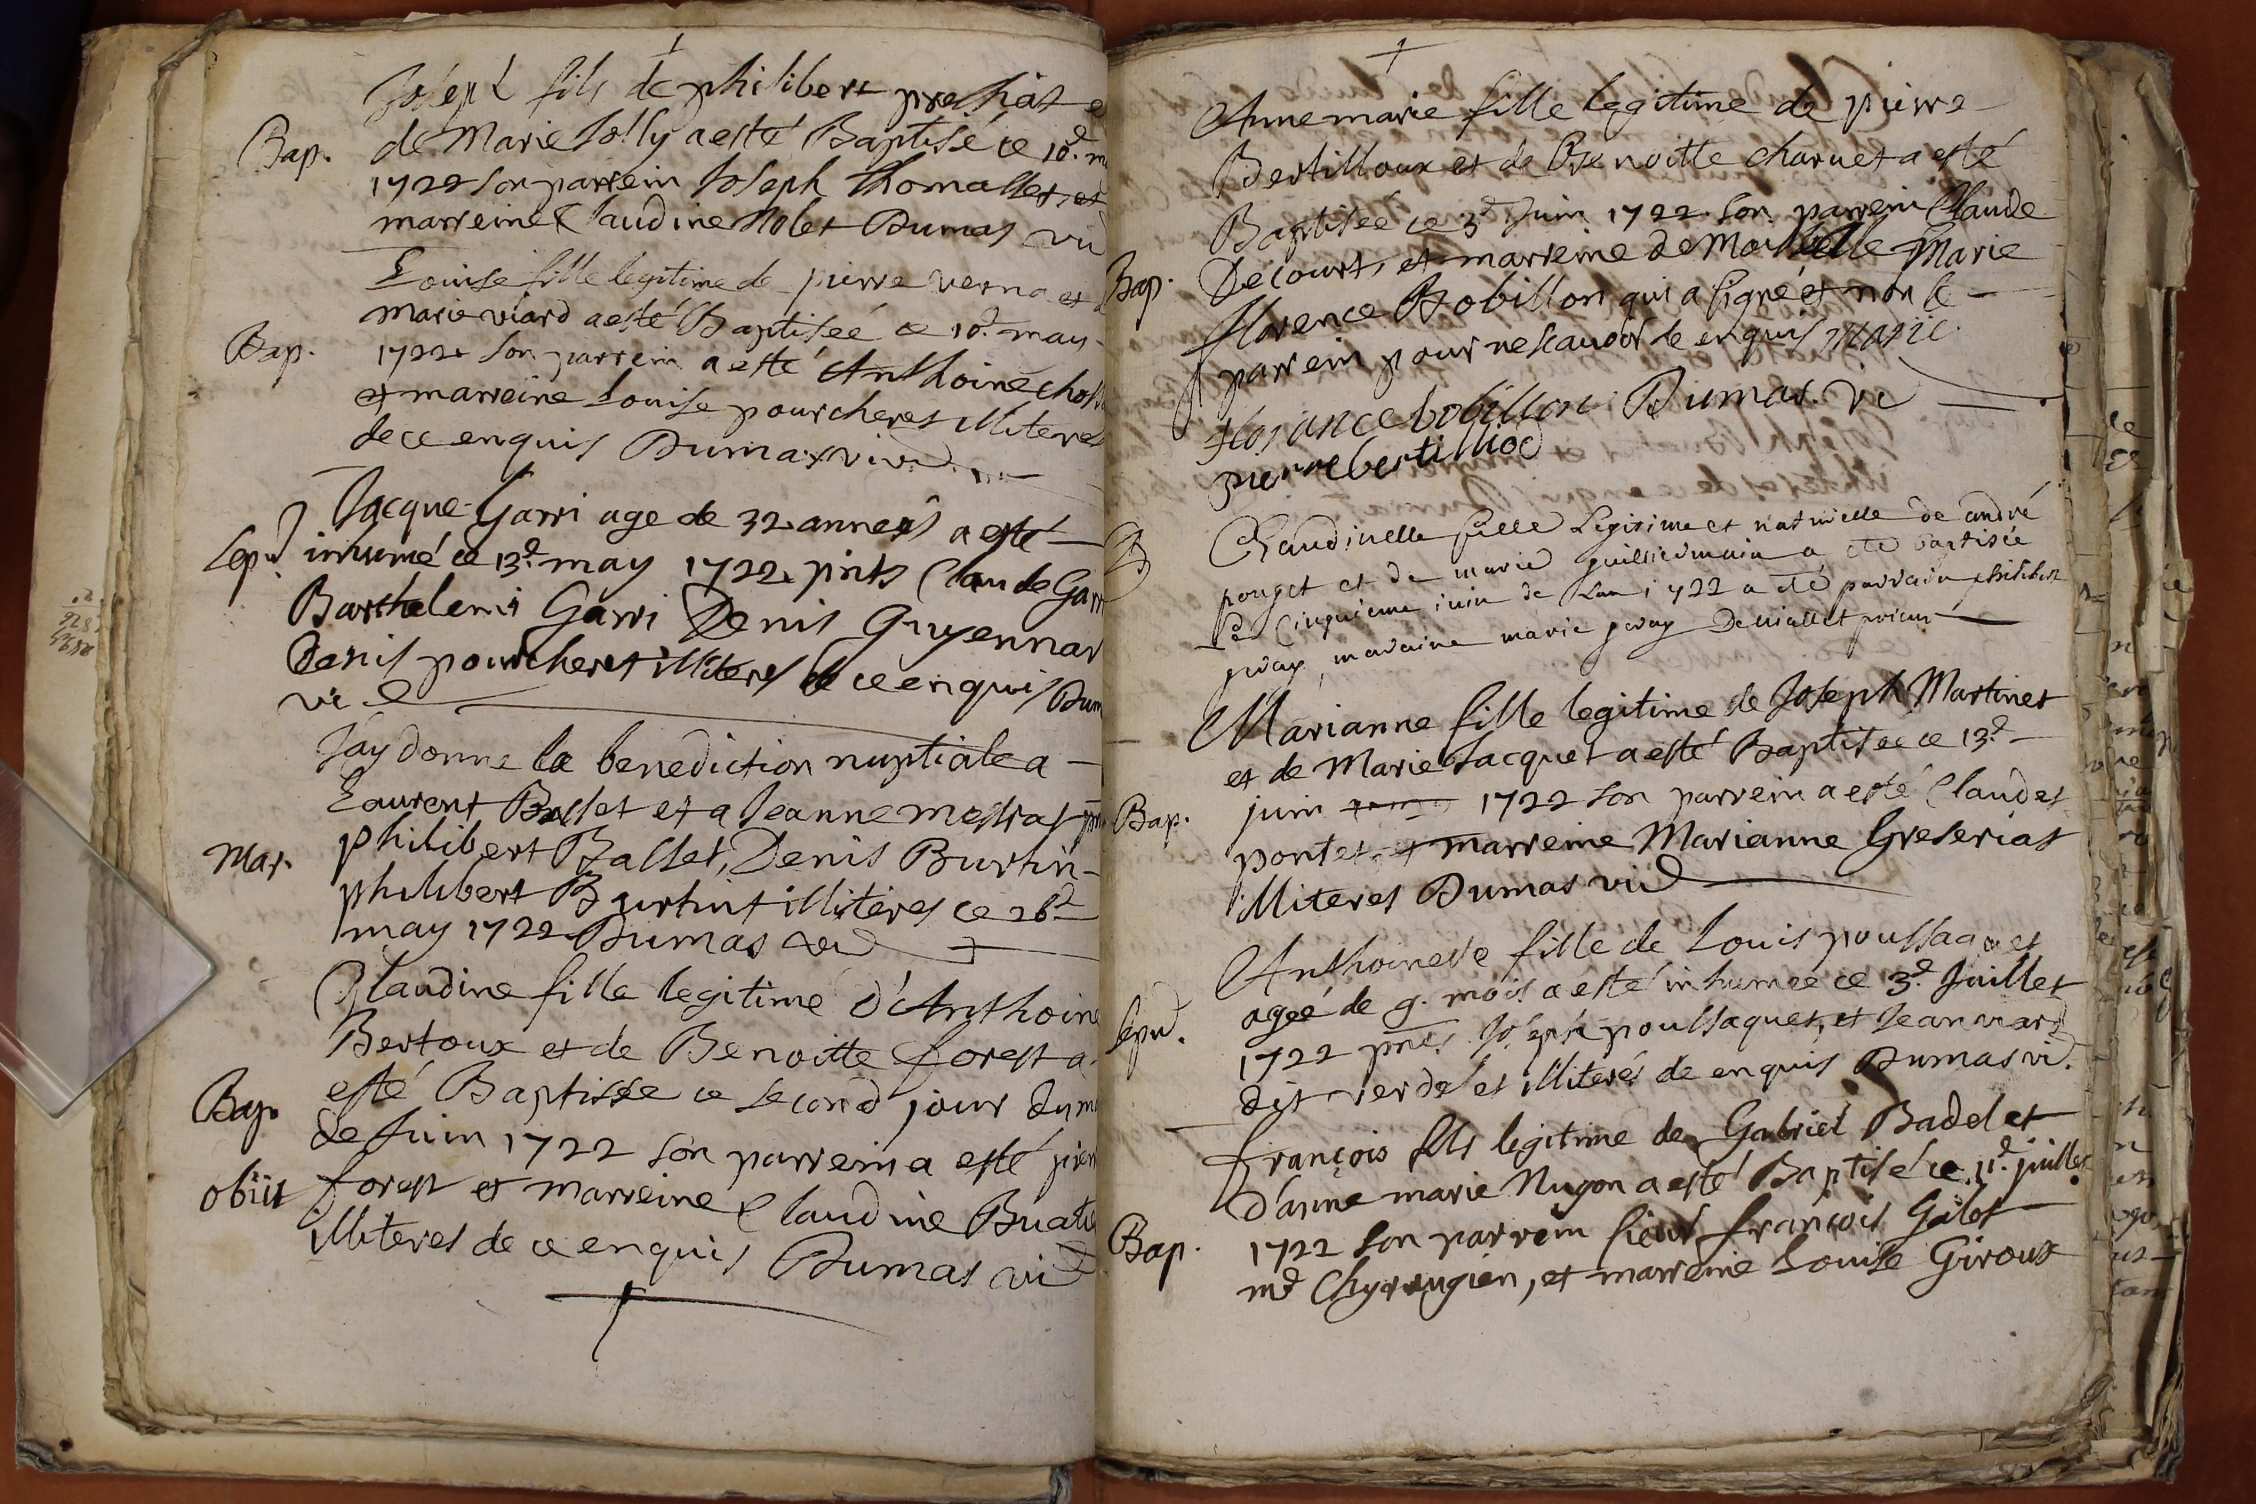 Joseph fils de philibert prethiat e
Bap. de Marie Jolly a esté Baptisé ce 10e. m
1722 son parrein Joseph Thomasset, et
marreine Claudine Nolet Dumas vic
Louise fille legitime de pierre verna et
marie viard a esté Baptiseé ce 10e. may
Bap. 1722. son parrein a esté Anthoine
et marreine Louise pourcheret illiteres
de ce enquis Dumas vic
Jacque Garri age de 32. anneés a esté
sepu. inhumé ce 13e. may 1722. pnts Claude Garr
Barthelemi Garri Denis Guyennar
Denis pourcheret illiteres de ce enquis Dum
vic
J'ay donne la benediction nuptiale a
Laurent Ballet et a Jeanne mestrat
Mar. philibert Ballet, Denis Burtin
philibert Burtin illiteres ce 26e
may 1722. Dumas vic
Claudine fille legitime d'Anthoine
Bertoux et de Benoitte forest a
Bap. esté Baptisée ce second jour du m
de Juin 1722 son parrein a esté pierr
obiit forest et marreine Claudine Buat
illiteres de ce enquis Dumas vic
Anne marie fille legitime de pierre
Bertilloux et de Benoitte charnet a esté
Baptisée ce 3e Juin 1722. son parrein Claude
Bap. Decourt, et marreine demoiselle Marie
florence Bobillon qui a signé et non le
parrein pour ne scavoir de enquis marie
florance bobillon Dumas. vic
pierre bertilliod
Claudinelle fille Legitime et naturelle de andré
pouget et de marie guilliermain a été baptisée
Le Cinquieme iuin de Lan 1722 a été parrain philibert
gray, maraine marie gray Demallet prieur
Marianne fille legitime de Joseph Martinet
et de Marie Jacquet a esté Baptisée ce 13e.
Bap. juin 1722 son parrein a esté Claudet
pontet, et marreine Marianne Greserias
illiteres Dumas vic
Anthoinette fille de Louis poussaquet
ageé de 9. mois a esté inhumeé ce 3e. Juillet
sepu. 1722 pnts. Joseph poussaquet, et Jean viard
dit verdel et illiterés de enquis Dumas vic.
françois fils legitime de Gabriel Badel et
d'anne marie Nugon a esté Baptisé ce 11e. juillet
Bap. 1722 son parrein sieur françois Gilot
md Chyrurgien, et marreine Louise Giroux